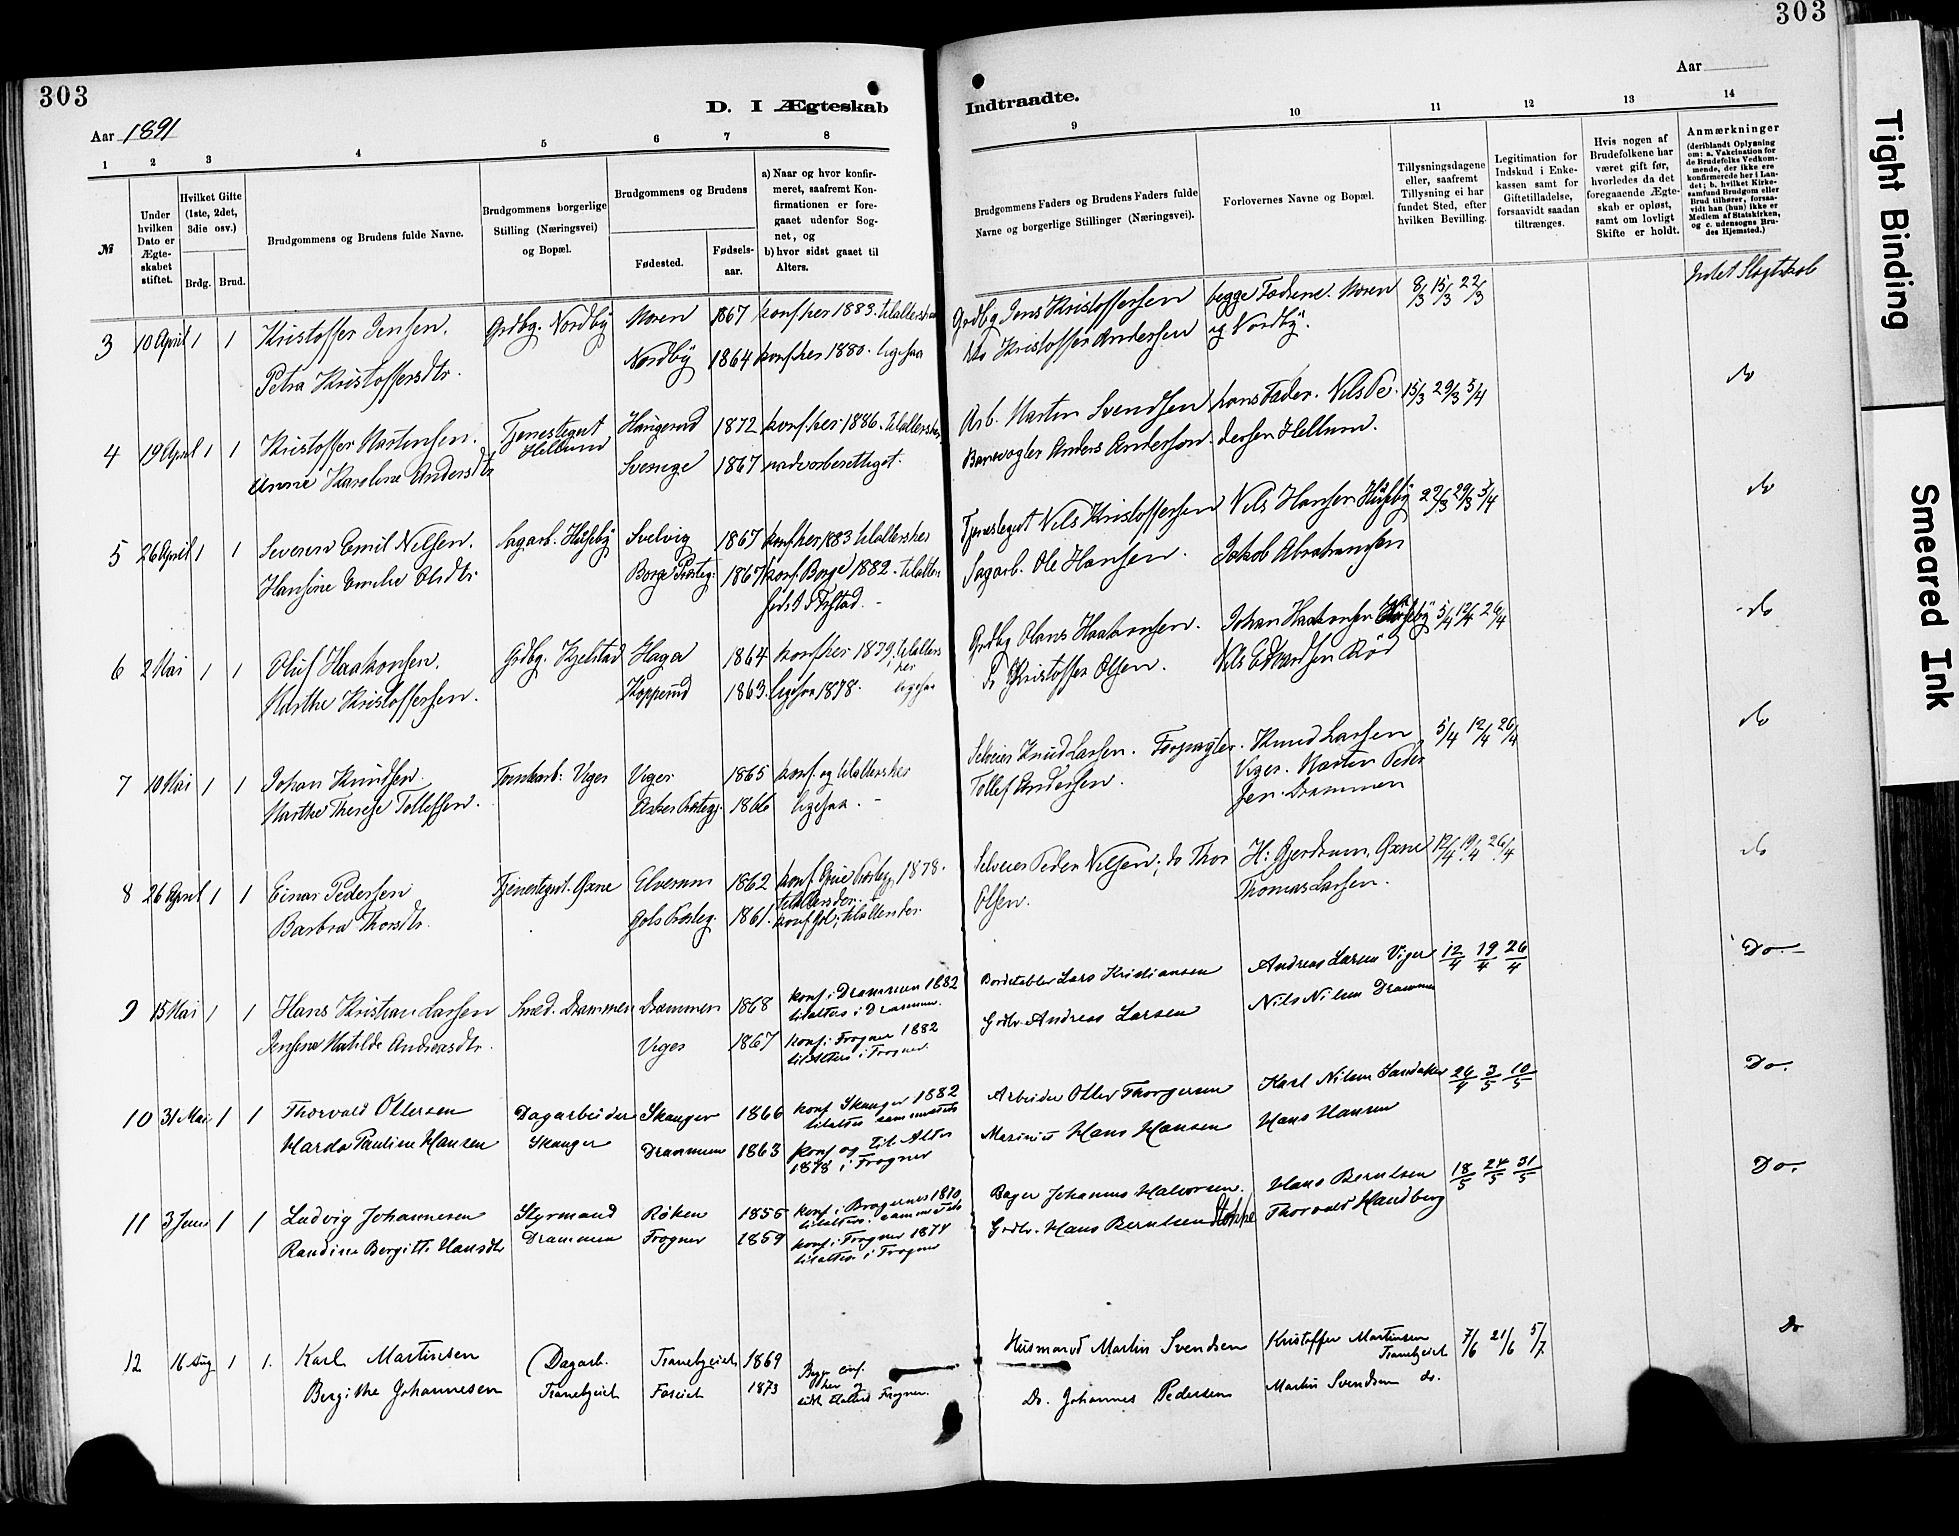 303
303
D. I Ægteskab
Indtraadte.
Aar 1891
Aar
1 2 3 4 5 6 7 8 9 10 11 12 13 14
№
Under hvilken Dato er Ægteskabet stiftet.
Hvilket Gifte (1ste, 2det, 3die osv.)
Brdg. Brud.
Brudgommens og Brudens fulde Navne.
Brudgommens borgerlige Stilling (Næringsvei) og Bopæl.
Brudgommens og Brudens
Fødested.
Fødselsaar.
a) Naar og hvor konfirmeret, saafremt Konfirmationen er foregaaet udenfor Sognet, og
b) hvor sidst gaaet til Alters.
Brudgommens Faders og Brudens Faders fulde Navne og borgerlige Stillinger (Næringsvei).
Forlovernes Navne og Bopæl.
Tillysningsdagene eller, saafremt Tillysning ei har fundet Sted, efter hvilken Bevilling.
Legitimation for Indskud i Enkekassen samt for Giftetilladelse, forsaavidt saadan tiltrænges.
Hvis nogen af Brudefolkene har været gift før, hvorledes da det foregaaende Ægteskab er opløst, samt om lovligt Skifte er holdt.
Anmærkninger (deriblandt Oplysning om: a. Vakcination for de Brudefolks Vedkommende, der ikke ere konfirmerede her i Landet; b. hvilket Kirkesamfund Brudgom eller Brud tilhører, forsaavidt han (hun) ikke er Medlem af Statskirken, og c. udensogns Brudes Hjemsted.)
3 10 April 1 1 Kristoffer Jensen. Grdbg. Nordby Noren 1867 konf. her 1883. tilalters her Grdbg Jens Kristoffersen begge Fædrene. Noren 8/3 15/3 22/3 Intet Slægtskab
Petra Kristoffersdtr. Nordby 1864 konf. her 1880. ligesaa do Kristoffer Andersen og Nordby.
4 19 April 1 1 Kristoffer Martinsen. Tjenestegut Hellum Haugerud 1872 konf. her 1886. tilalters her. Arb. Martin Svendsen hans Fader. Nils Pe- 15/3 29/3 5/4 do
Anne Karoline Andersdtr Sverige 1867 nadverberettiget. Banevogter Anders Anderson. dersen Hellum.
5 26 April 1 1 Severin Emil Nilsen. Sagarb. Huseby Svelvig 1867 konf. her 1883 tilalters her Tjenestegut Nils Kristoffersen Nils Hansen Huseby 22/3 29/3 5/4 do
Hansine Emelie Olsdtr Borge Præsteg: 1867 konf. Borge 1882. tilalters Sagarb. Ole Hansen. Jakob Abrahamsen
6 2 Mai 1 1 Oluf Haakonsen. Grdbg. Kjelstad Haga 1864 konf. her 1879. tilalters her Grdbg Olaus Haakonsen. Johan Haakonsen Huseby 5/4 12/4 26/4 do
Marthe Kristoffersen. Kopperud 1863. ligesaa 1878. ligesaa Do Kristoffer Olsen. Nils Edvardsen Rød
7 10 Mai 1 1 Johan Knudsen. Tomtearb: Viger Viger 1865 konf. og tilalters her Selveier Knud Larsen. Forpagter. Knud Larsen 5/4 12/4 26/4 do
Marthe Therese Tollefsen. Asker Præsteg: 1866 ligesaa. - Tollef Andersen. Viger. Martin Peder
sen. Drammen
8 26 April 1 1 Einar Pedersen Tjenestegut. Øxne Elverum 1862 konf. Grue Præsteg. 1878. tilalters der. Selveier Peder Nilsen; do Thor H: Gjerdrum, Øxne 12/4 19/4 26/4 do
Barbra Thorsdtr. Gols Præsteg. 1861. konf. Gol; tilalters der. Olsen. Thomas Larsen.
9 15 Mai 1 1 Hans Kristian Larsen Smed. Drammen Drammen 1868 konf. i Drammen 1882 tilalters i Drammen. Bordstabler Lars Kristiansen Andreas Larsen Viger 12/4 19/4 26/4 Do.
Jensine Matilde Andreasdtr. Viger 1867 konf. i Frogner 1882 tilalters i Frogner Grdbr. Andreas Larsen Nils Nilsen Drammen
10 31 Mai 1 1 Thorvald Ottersen Dagarbeider Skanger 1866 konf Skanger 1882 tilalters sammesteds Arbeider Otter Thorgersen Karl Nilsen Sandaker 26/4 3/5 10/5 Do.
Marda Pauline Hansen Skanger Drammen 1863 konf og til Alters 1878 i Frogner Hans Hansen Hans Hansen
11 3 Juni 1 1 Ludvig Johannesen Styrmand Røken 1855 konf. i Bragernes 1870. tilalters sammesteds Bager Johannes Halvorsen. Hans Berntsen 18/5 24/5 31/5 Do.
Randine Bergitte Hansdtr Drammen Frogner 1859 konf. i Frogner 1874 tilalters i Frogner Grdbr. Hans Berntsen Stoppe Thorvald Handberg
12 16 Aug 1 1. Karl Martinsen Dagarb. Tranebyeiet 1869 Begge conf. her og Husmand Martin Svendsen Kristoffer Martinsen Tranebyeiet 7/6 21/6 5/7 Do
Bergithe Johannesen Tranebyeiet Foseiet 1873 sidst tilalters Frogner. Do. Johannes Pedersen Martin Svendsen do.
Tight Binding
Smeared Ink